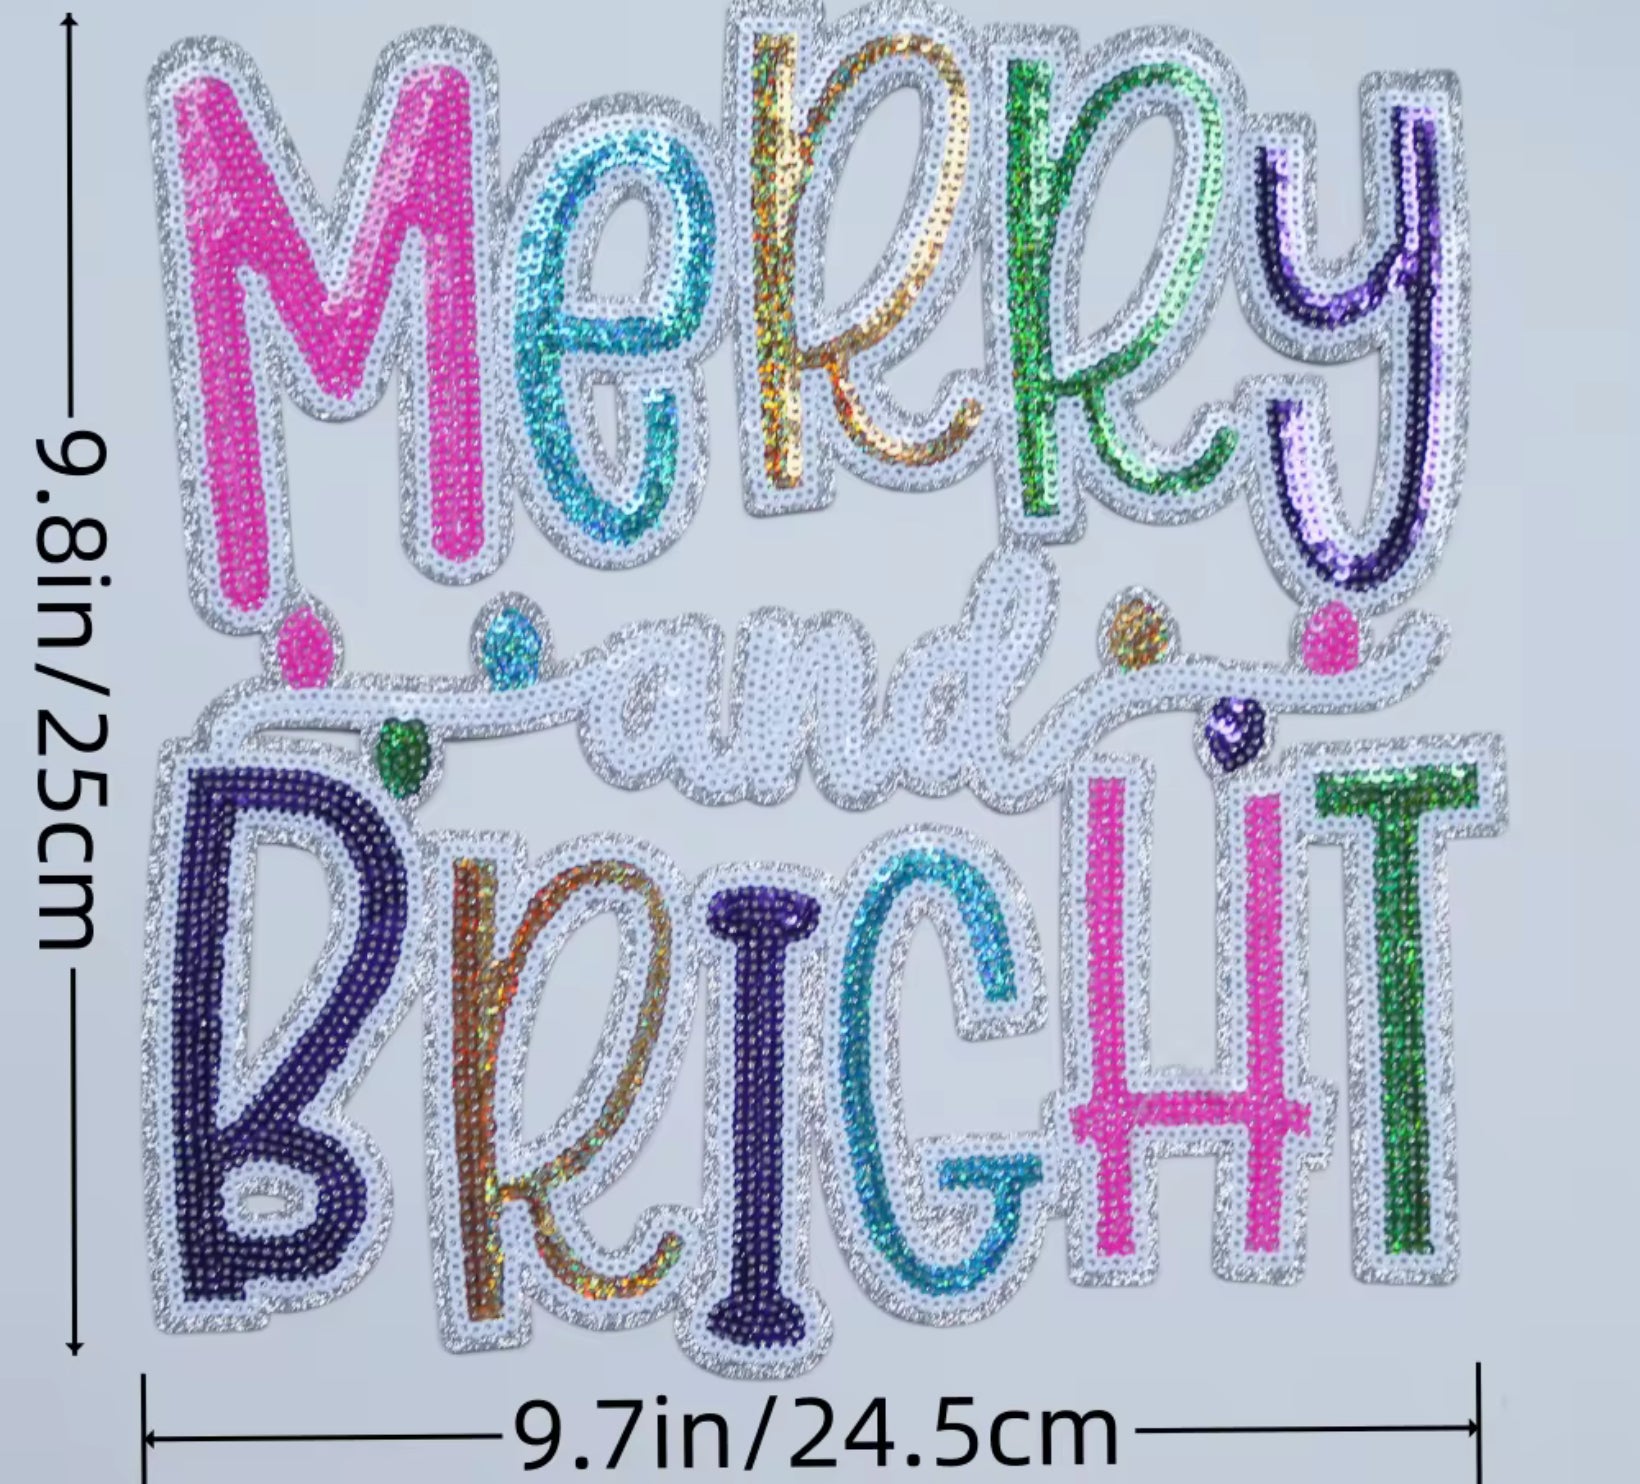 Merry
and
BRIGHT
9.8in/25cm
9.7in/24.5cm